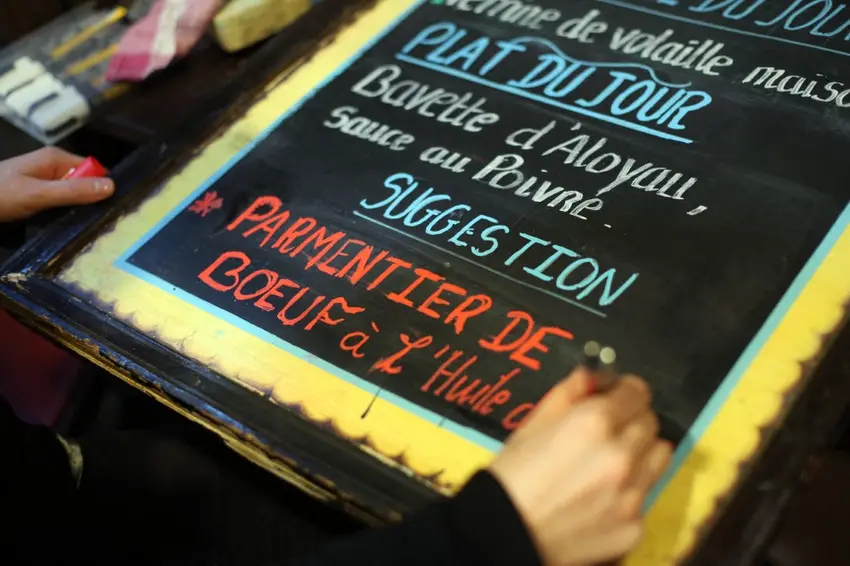 DU JOUR
de volaille maison
PLAT DU JOUR
Bavette d'Aloyau,
Sauce au Poivre.
SUGGESTION
PARMENTIER DE
BOEUF à L'Huile